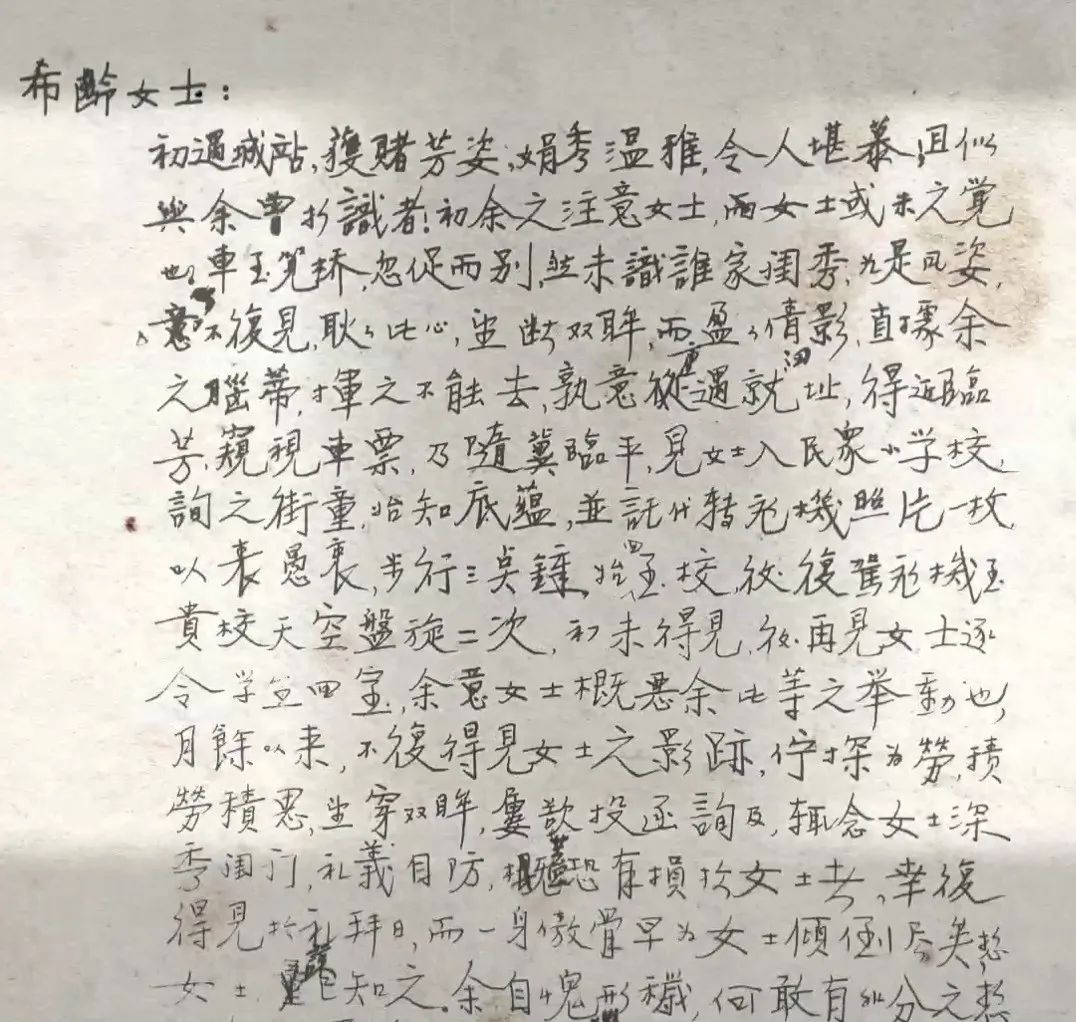 希齡女士：
初遇城站，獲賭芳姿，娟秀温雅，令人堪慕，且似
與余曽於識者！初余之注意女士，而女士或未之覚
也，車至筧桥，忽促而别，然未識誰家閨秀，九是风姿，
意不復見，耿々此心，望断双眸，而盈々倩影，直據余
之腦蒂，揮之不能去，孰意從重遇就洄址，得近臨
芳，窺視車票，乃隨冀臨平，見女士入民衆小学校，
詢之街童，始知底蘊，並託代轉飛機照片一枚，
以表愚衷，步行三点鐘，始回至校，後復駕飛機至
貴校天空盤旋二次，初未得見，後再見女士逐
令学生回室，余意女士概惡余此等之举動也，
月餘以来，不復得見女士之影跡，佇探为勞，積
勞積思，望穿双眸，屢欲投函詢及，輒念女士深
秀閨门，礼義自防，恐有損於女士者，幸復
得見於礼拜日，而一身傲骨早为女士傾倒尽矣，想
女士 已知之。余自愧形穢，何敢有非分之想